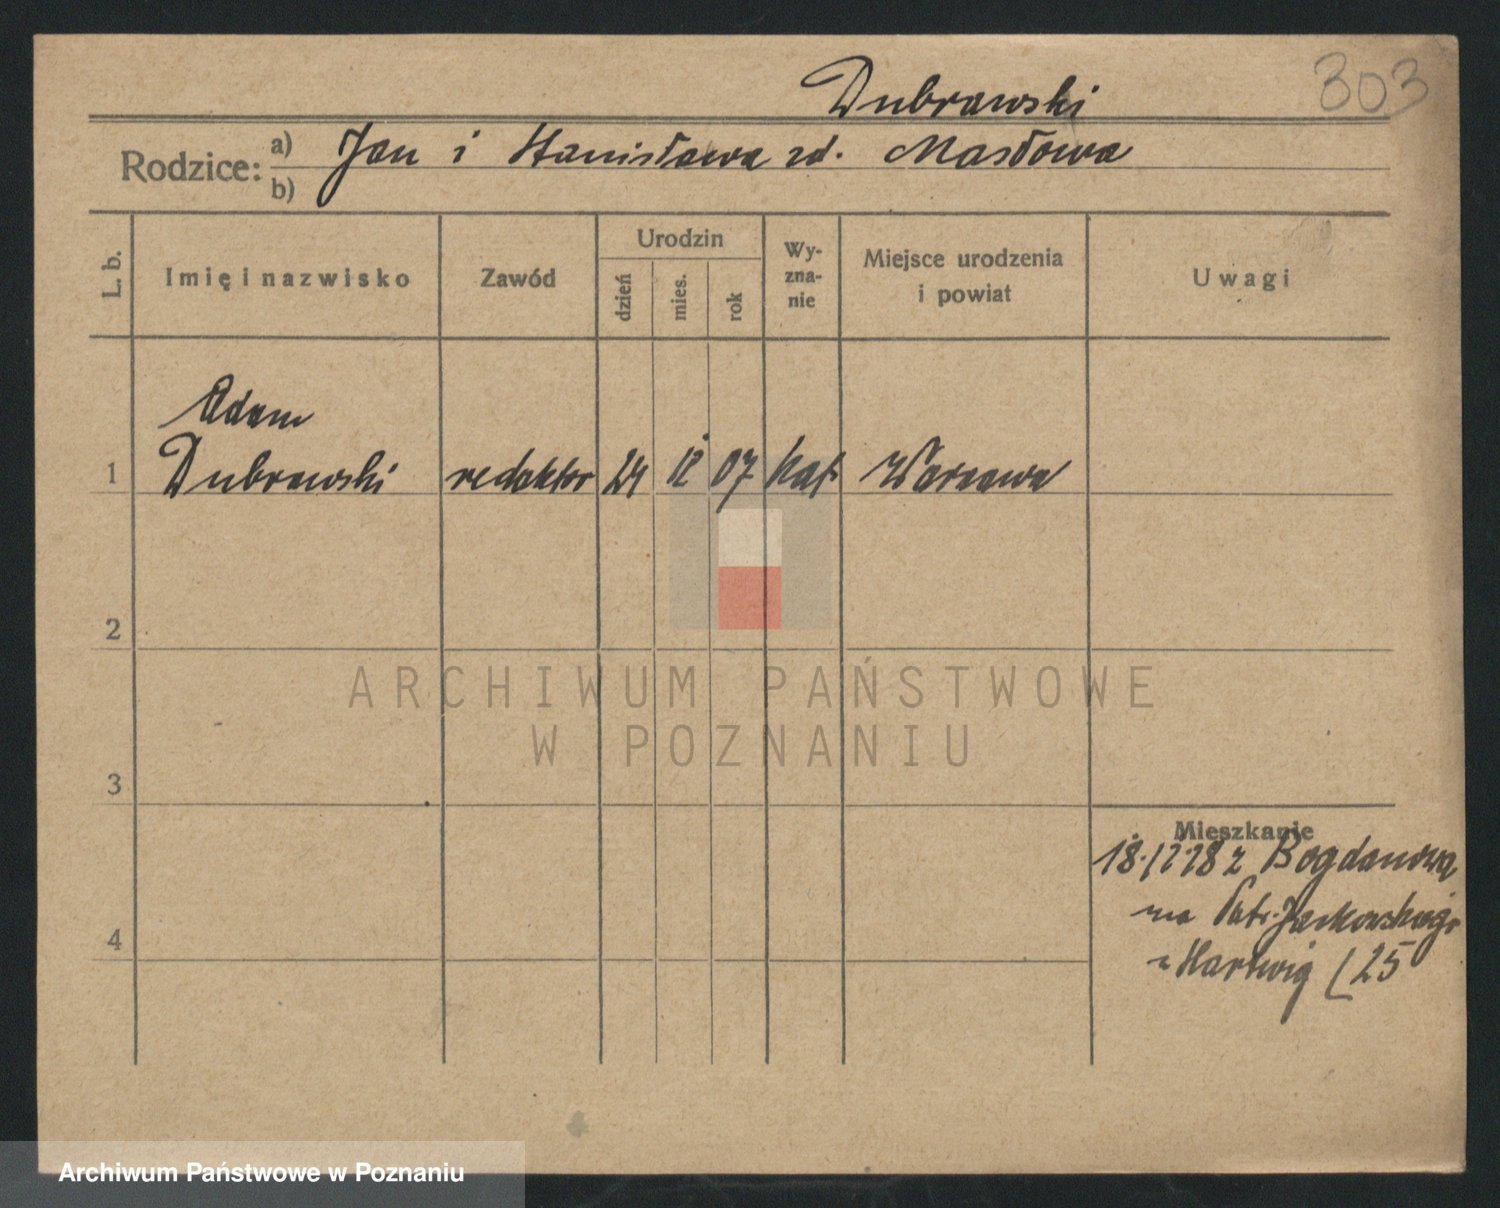 303
Dubrawski
Rodzice: a) Jan i Stanisława zd. Masłowa
b)
L. b. Imię i nazwisko Zawód Urodzin dzień mies. rok Wy-zna-nie Miejsce urodzenia i powiat Uwagi
Adam
1 Dubrawski redaktor 24 12 07 kat Warszawa
2
ARCHIWUM PAŃSTWOWE
W POZNANIU
3
Mieszkanie
18.12.28 z Bogdanowa
na Patr. Jackowskiego
u Hartwig 25
4
Archiwum Państwowe w Poznaniu